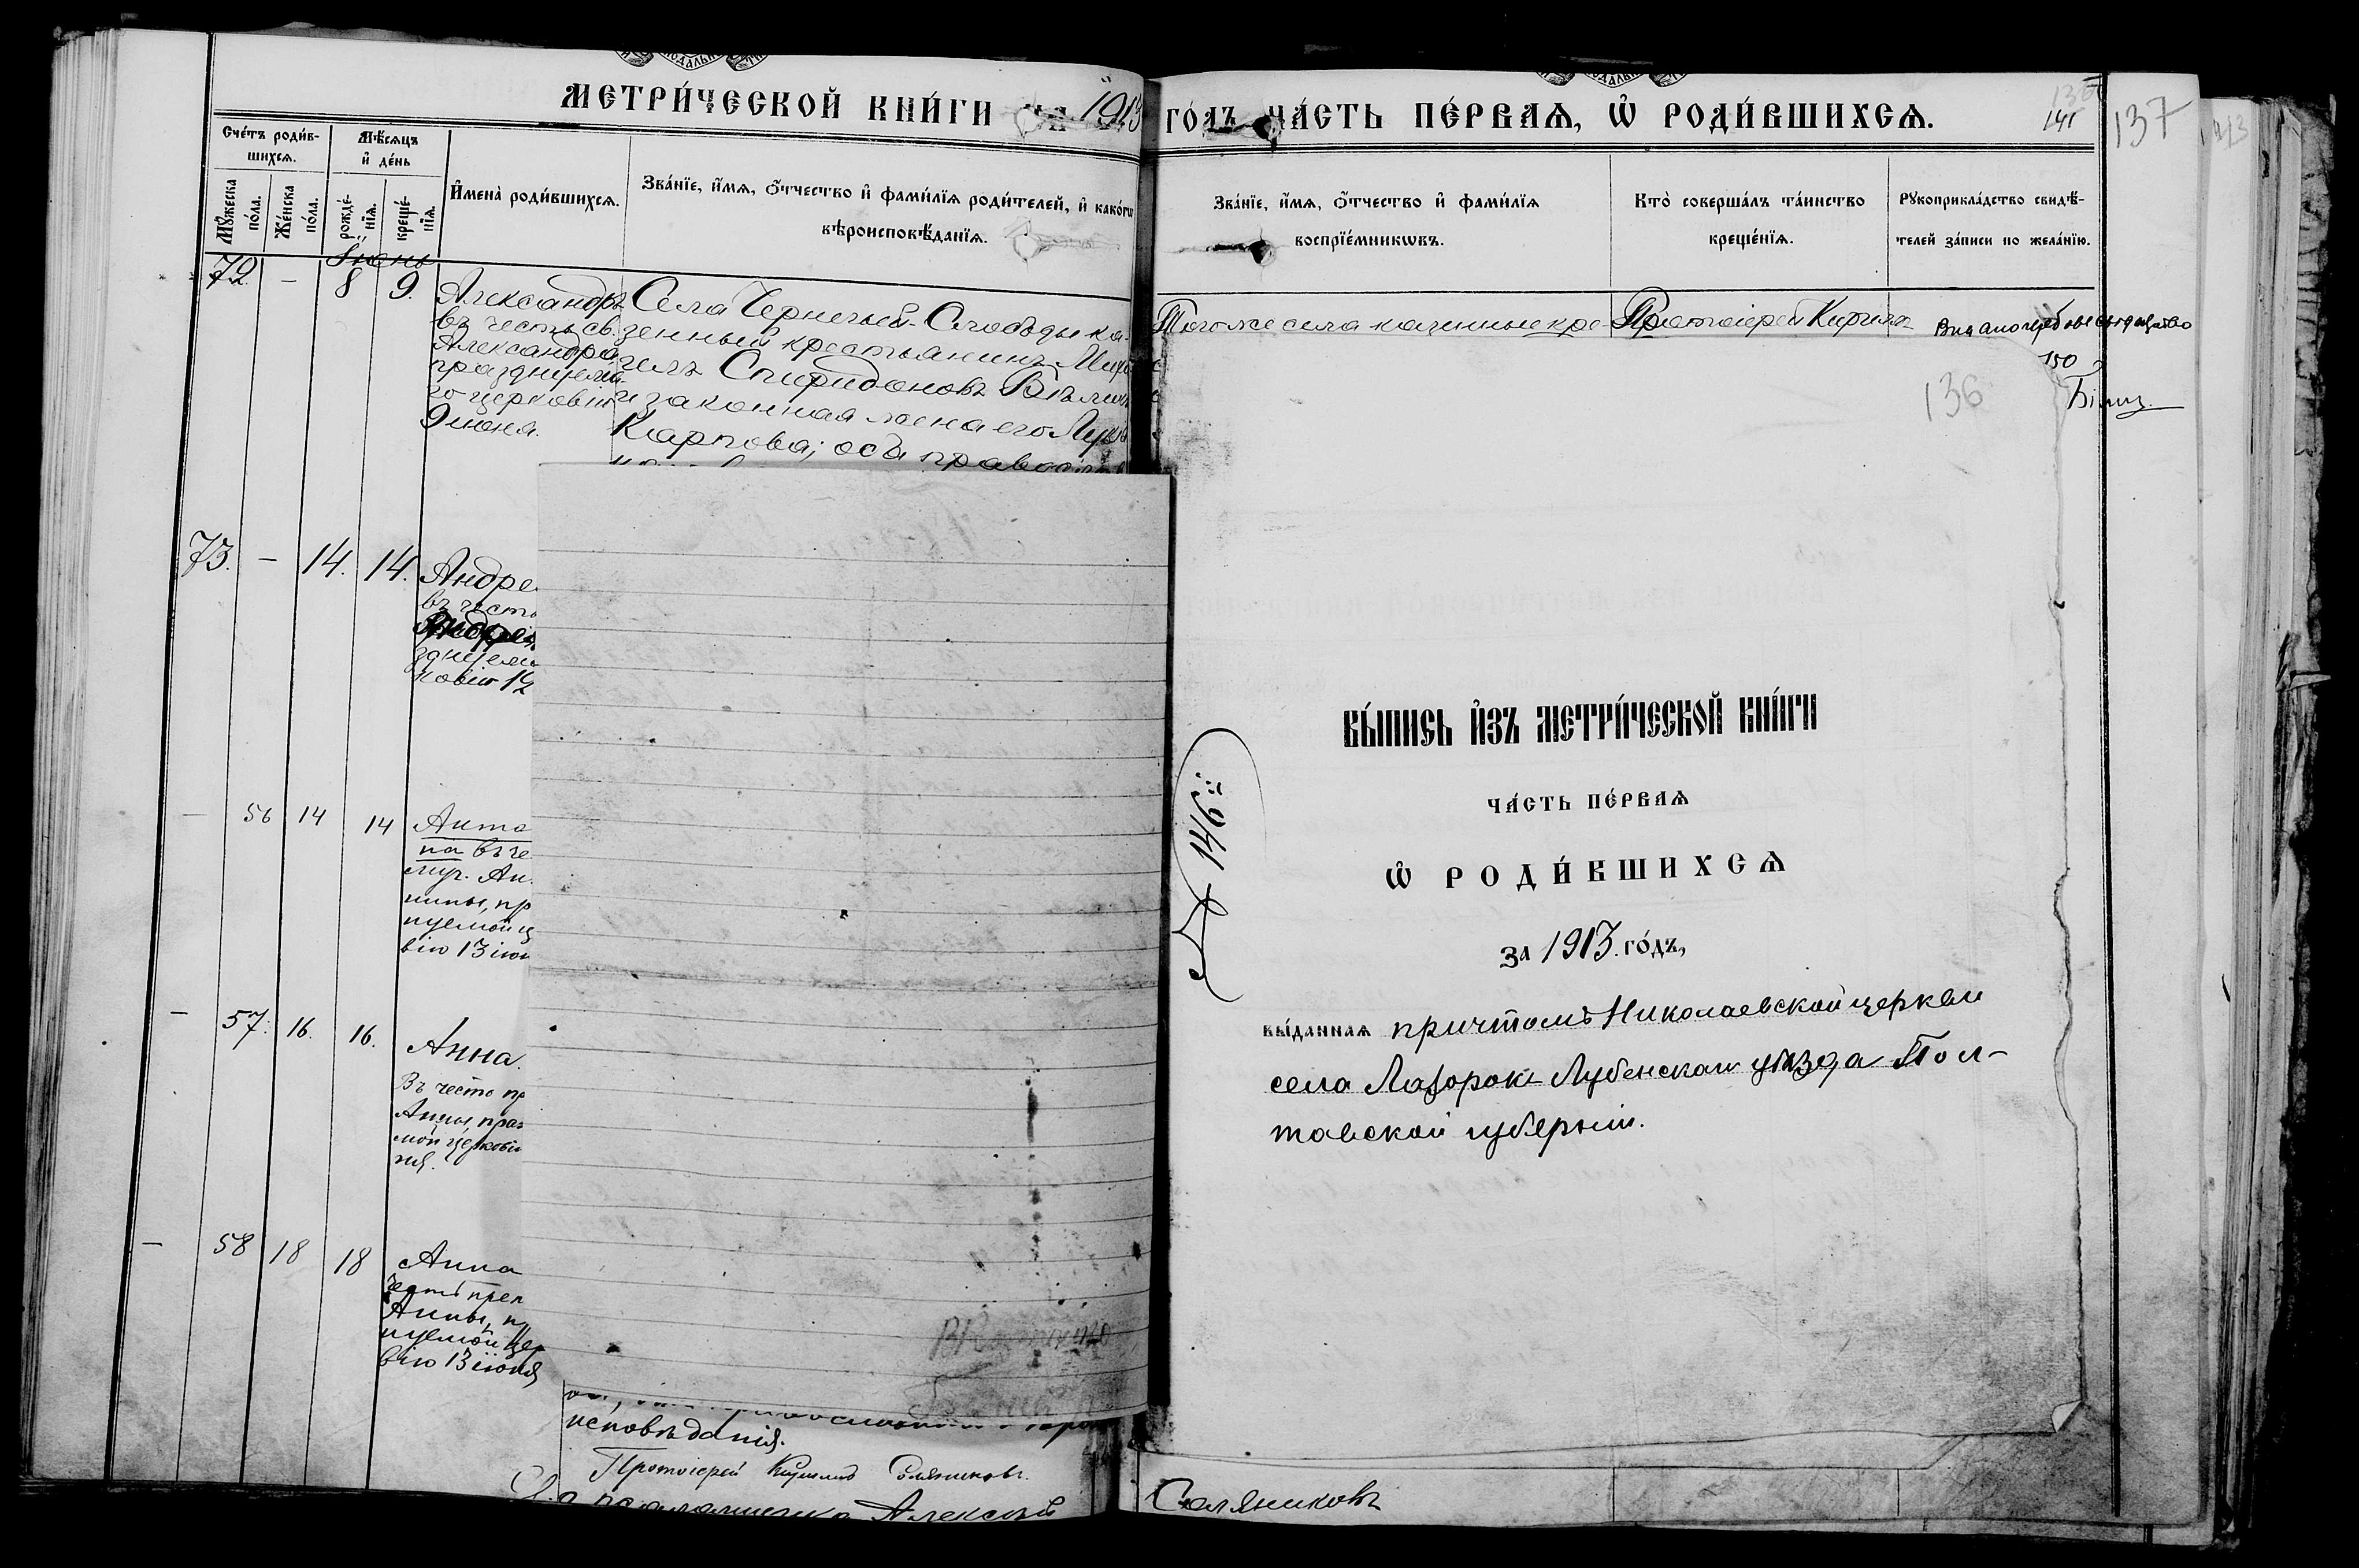 МЕТРИ́ЧЕСКОЙ КНИ́ГИ НА 1913 ГО́ДЪ ЧА́СТЬ ПЕ́РВАѦ, Ѡ҆ РОДИ́ВШИХСѦ.
141
137
Сче́тъ роди́в-
шихсѧ.
Мѣ́сѧцъ
и҆ де́нь
Мꙋ́жеска
по́ла.
Же́нска
по́ла.
рожде́-
нїѧ.
креще́-
нїѧ.
И҆мена̀ роди́вшихсѧ.
Зва́нїе, и҆́мѧ, ѻ҆́тчество и҆ фами́лїѧ роди́телей, и҆ како́гѡ
вѣроисповѣ́данїѧ.
Зва́нїе, и҆́мѧ, ѻ҆́тчество и҆ фами́лїѧ
воспрїе́мникѡвъ.
Кто̀ соверша́лъ та́инство
креще́нїѧ.
Рꙋкоприкла́дство свидѣ́-
телей за́писи по жела́нїю.
Іюнь
72. — 8 9.
Александръ
въ честь св.
Александра
празднуема-
го церковію
9 июня.
Села Чернечьей-Слободы ка-
зенный крестьянинъ Миха-
илъ Спиридоновъ
и законная жена его
Карпова; оба правосл
Того же села казенные кре-
Протоіерей Кирилл
150
136
73. — 14. 14.
Андре
въ честь
Андрея
здуема
ковію 12
— 56 14 14
Анто
на въ че
муч. Ан
нины, пр
нуемой ц
вію 13 іюн
— 57. 16. 16.
Анна.
Въ честь пр
Анны, праз
мой церкові
ня.
— 58 18 18
Анна
честь преп
Анны, п
нуемой цер
вію 13 іюня
исповѣданія.
Протоіерей Кириллъ Соляниковъ.
псаломщика Алексѣй
Соляниковъ
№ 146
ВЫ́ПИСЬ И҆ЗЪ МЕТРИ́ЧЕСКОЙ КНИ́ГИ
ЧА́СТЬ ПЕ́РВАѦ
Ѡ҆ РОДИ́ВШИХСѦ
за 1913. го́дъ,
вы́даннаѧ причтомъ Николаевской церкви
села Лазорок Лубенскаго уѣзда Пол-
тавской губерніи.